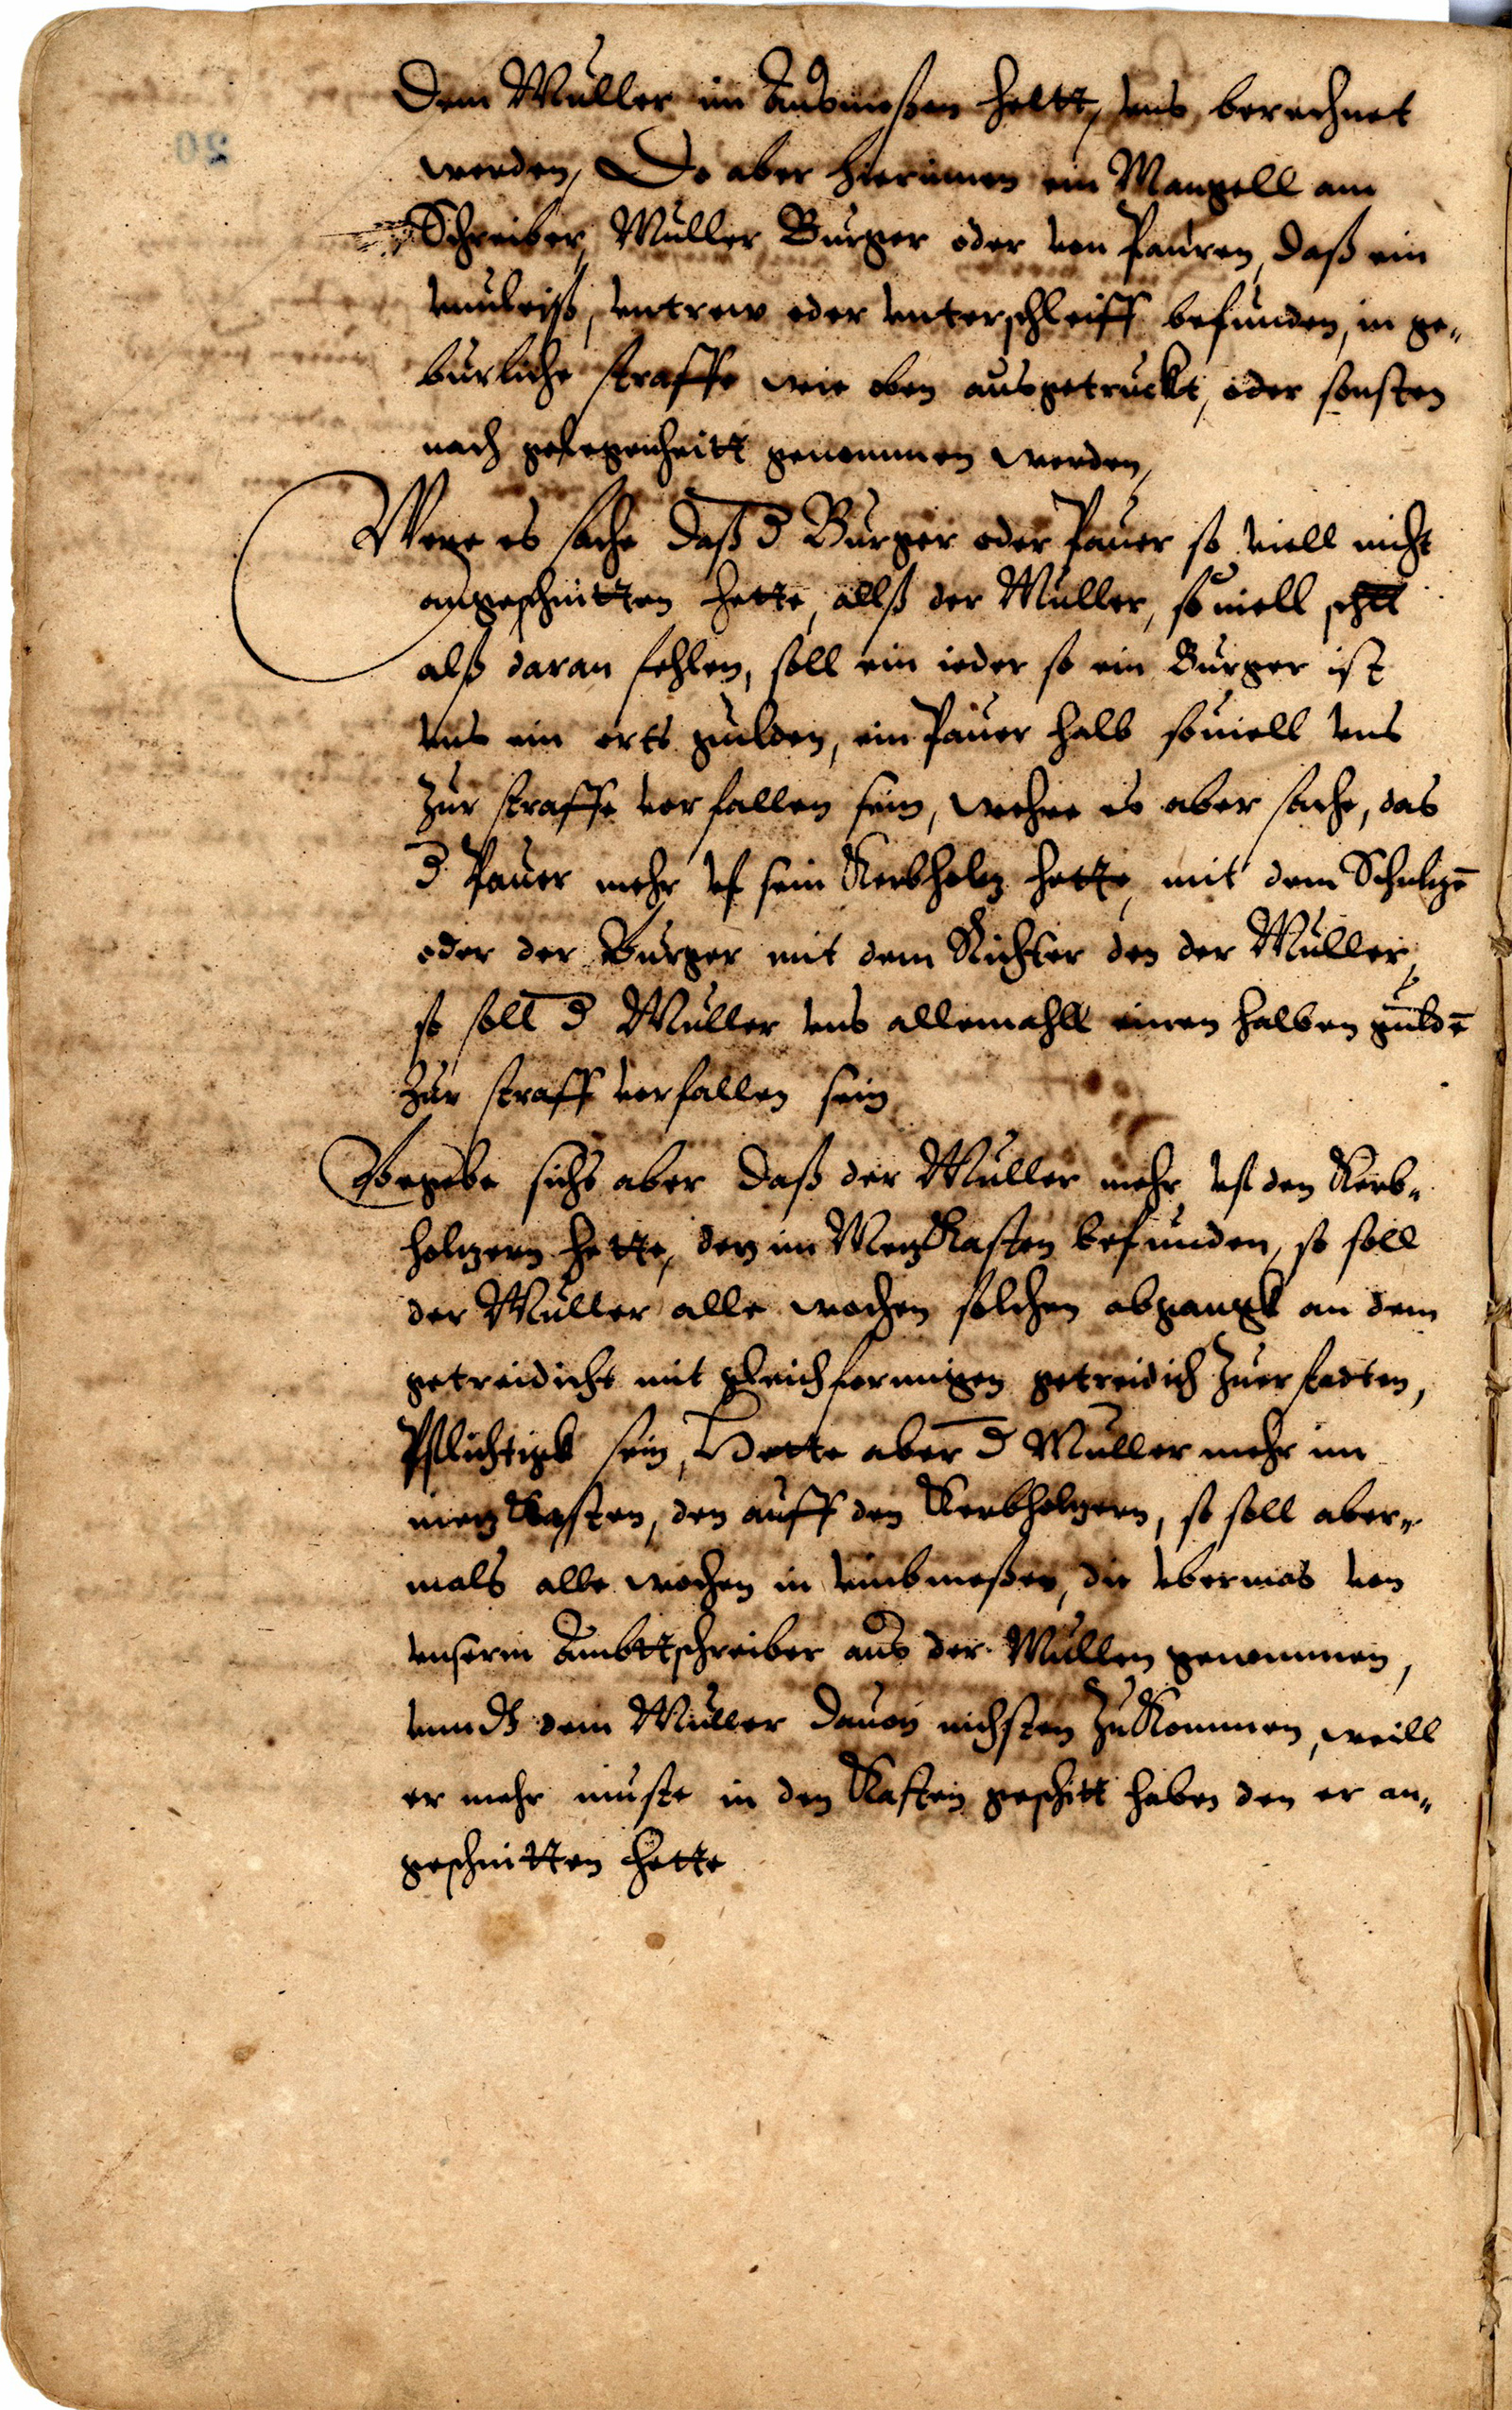 Dem Müller im Ausmeßen heltt, vns berechnet
werden, Do aber hierinnen ein Mangell am
Schreiber, Müller Bürger oder von Pauren, daß ein
vnuleiß, vntrew oder vnterschleiff befunden, in ge-
bürliche straffe wie oben ausgetruckt, oder sonsten
nach gelegenheitt genommen werden,
Were es sache daß d Bürger oder Pauer so viell nicht
angeschnitten hette, allß der Müller, souiell schll
alß daran fehlen, soll ein ieder so ein Bürger ist
vns ein orts gulden, ein Pauer halb souiell vns
zur straffe verfallen sein, wehre es aber sache, das
d Pauer mehr vf sein Kerbholtz hette, mit dem Schultzē
oder der Bürger mit dem Richter den der Müller,
so soll d Müller vns allemahll einen halben guldē
zur straff verfallen sein
Begebe sichs aber daß der Müller mehr vf den Kerb-
holtzern hette, den im Metzkasten befunden, so soll
der Müller alle wochen solchen abgangk an dem
getreidicht mit gleichformigen getreidich zuerstadten,
Pflichtigk sein, Hette aber d Müller mehr im
metz Kasten, den auff den Kerbholtzern, so soll aber-
mals alle wochen in vmbmeßen, die vbermas von
vnserm Ambttschreiber aus der Mullen genommen,
vnndt dem Müller dauon nichsten zukommen, weill
er mehr muste in den Kasten geschitt haben den er an-
geschnitten hette